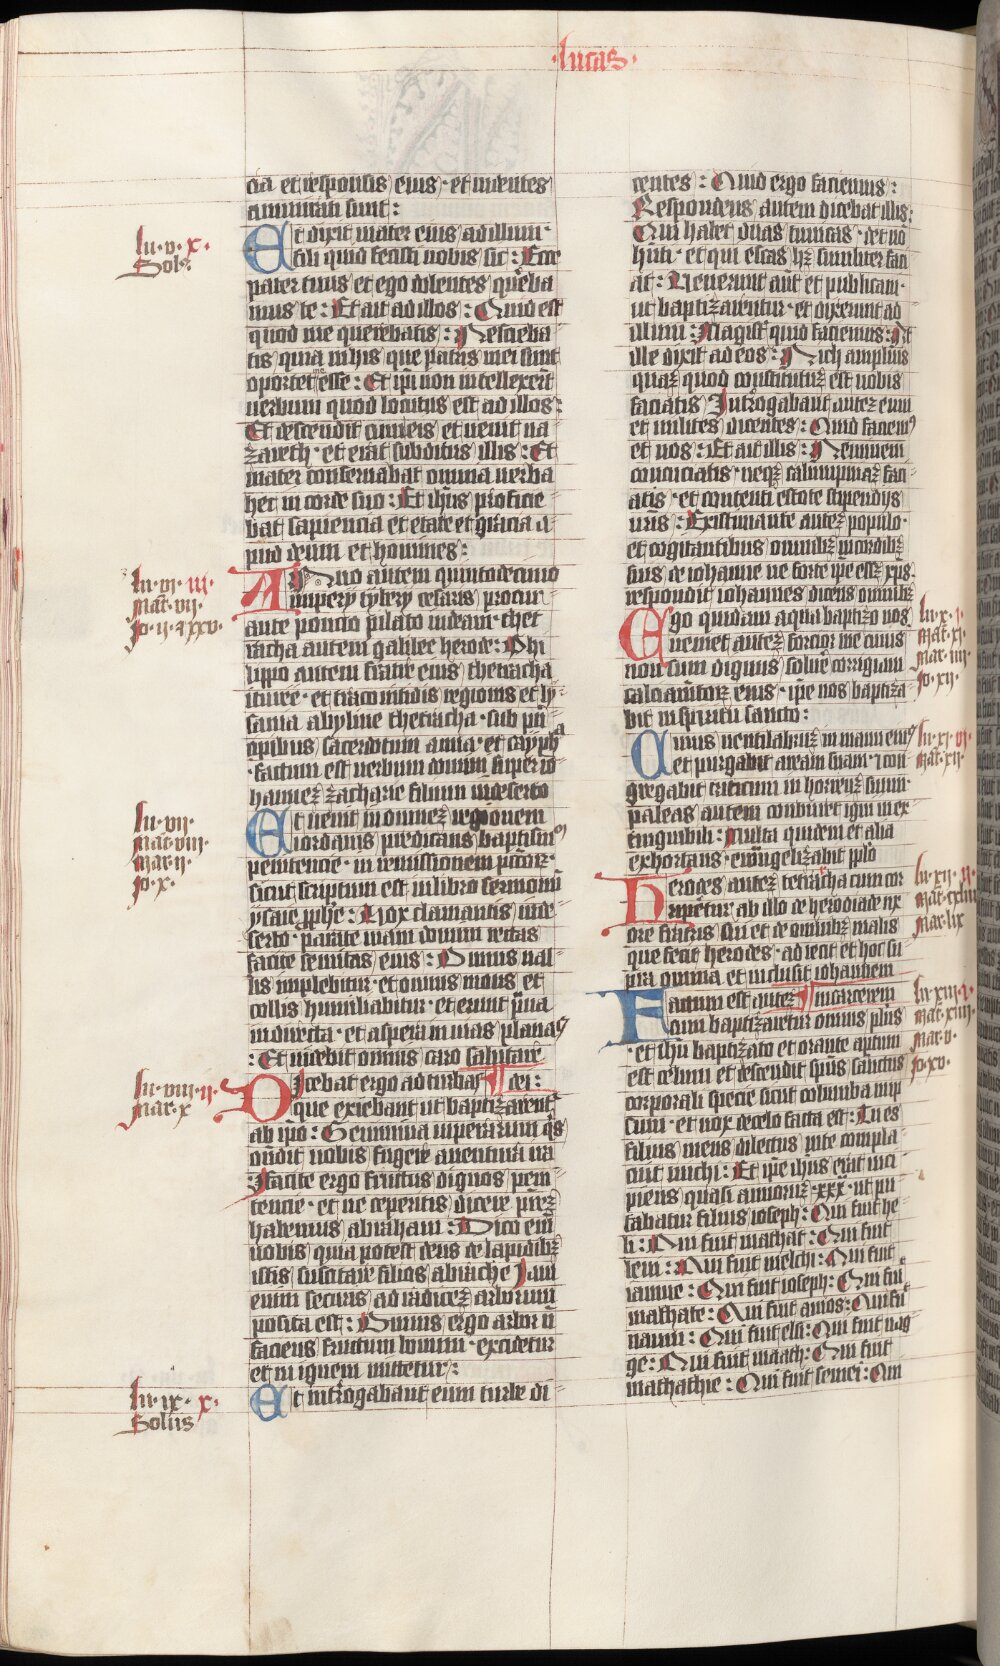 ·lucas·
cia et responsis eius · et uidentes
ammirati sunt :
lu · v · x ·
Sol⁹
Et dixit mater eius ad illum ·
fili quid fecisti nobis sic : Ecce
pater tuus et ego dolentes quereba
mus te : Et ait ad illos : Quid est
quod me querebatis : Nescieba
tis quia in his que patris mei sunt
oportet me esse : Et ipi non intellexerūt
uerbum quod locutus est ad illos :
Et descendit cum eis et uenit na
zareth · et erat subditus illis : Et
mater conseruabat omnia uerba
hec in corde suo : Et ihūs proficie
bat sapiencia et etate et gracia a
pud deum et homines :
lu · vi · iii ·
Mat · vii ·
Jo · ii · et xxv ·
Anno autem quintodecimo
imperij tyberij cesaris procur
ante poncio pilato iudeam · thet
racha autem galilee herode : Phi
lippo autem fratre eius thetracha
ituree · et traconitidis regionis et ly
sania abyline thetracha · sub prī
cipibus sacerdotum anna · et cayph
a · factum est uerbum domini super io
hannez zacharie filium in deserto
lu · vii ·
Mat · viii ·
Mar · ii ·
Jo · x ·
Et uenit in omnez regionem
iordanis predicans baptism⁹
penitencie · in remissionem pctorz ·
sicut scriptum est in libro sermonū
ysaie pphe : Uox clamantis in de
serto · parate uiam domini rectas
facite semitas eius : Omnis ual
lis implebitur · et omnis mons et
collis humiliabitur · et erunt praua
in directa · et aspera in uias planas
: Et uidebit omnis caro salutare
dei :
lu · viii · ii ·
Mar · x
Dicebat ergo ad turbas
que exiebant ut baptizarent
ab ipo : Genimina uiperarum q̄s
ondit uobis fugere a uentura ira
: Facite ergo fructus dignos peni
tencie · et ne ceperitis dicere prez
habemus abraham : Dico eīn
uobis quia potest deus de lapidibz
istis suscitare filios abrahe Iam
enim securis ad radicez arborum
posita est : Omnis ergo arbor n̄
faciens fructum bonum · excidetur
et in ignem mittetur :
lu · ix · x ·
Solius
Et introgabant eum turbe di
centes : Quid ergo faciemus :
Respondens autem dicebat illis :
Qui habet duas tunicas · det nō
hn̄ti · et qui escas hz similiter faci
at : Uenerunt aūt et publicani ·
ut baptizarentur · et dixerunt ad
illum : Magistr quid faciemus : At
ille dixit ad eos : Nich amplius
quaz quod constitutuz est uobis
faciatis Introgabant autez eum
et milites dicentes : Quid faciem⁹
et nos : Et ait illis : Neminem
concuciatis · neqz calumpniaz faci
atis · et contenti estote stipendijs
uris : Existimante autez populo ·
et cogitantibus omnibz in cordibz
suis de iohanne ne forte ipe essz xpūs ·
respondit iohannes dicens omnibz
lu · x · i ·
Mat · xi ·
Mar · iiii ·
Jo · xii ·
Ego quidam aqua baptizo uos
ueniet autez forcior me cuius
non sum dignus soluere corrigiam
calciamtorz eius · ipe uos baptiza
bit in spiritu sancto :
lu · xi · vi ·
Mat · xii ·
Cuius uentilabruz in manu eius
et purgabit aream suam · et con
gregabit triticum in horreuz suum ·
paleas autem conburet igni inex
tinguibili : Multa quidem et alia
exhortans · ewāngelizabat pplo
lu · xii · ii ·
Mat · cxliiii
Mar · lix
Herodes autez tetracha cum cor
riperetur ab illo de herodiade ux
ore fratris sui et de omnibz malis
que fecit herodes · adiecit et hoc su
pra omnia et inclusit iohannem
in carcerem
lu · xiii · i ·
Mat · xiiii ·
Mar · v ·
Jo · xv ·
Factum est autez
cum baptizaretur omnis plūs
· et ihu baptizato et orante aptum
est celum et descendit spūs sanctus
corporali specie sicut columba in ip
sum · et uox de celo facta est : Tu es
filius meus dilectus in te compla
cuit michi : Et ipe ihūs erat inci
piens quasi annoruz · xxx · ut pu
tabatur filius ioseph : Qui fuit he
li : Qui fuit mathat : Qui fuit
leui : Qui fuit melchi : Qui fuit
ianne : Qui fuit ioseph : Qui fuit
mathate : Qui fuit amos : Qui fuit
naum : Qui fuit esli : Qui fuit nag
ge : Qui fuit maath : Qui fuit
mathathie : Qui fuit semei : Qui